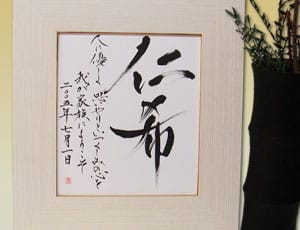 仁希
人に優しく思いやりといつくしみの心を
我が家族によりこそ
二〇〇五年七月一日